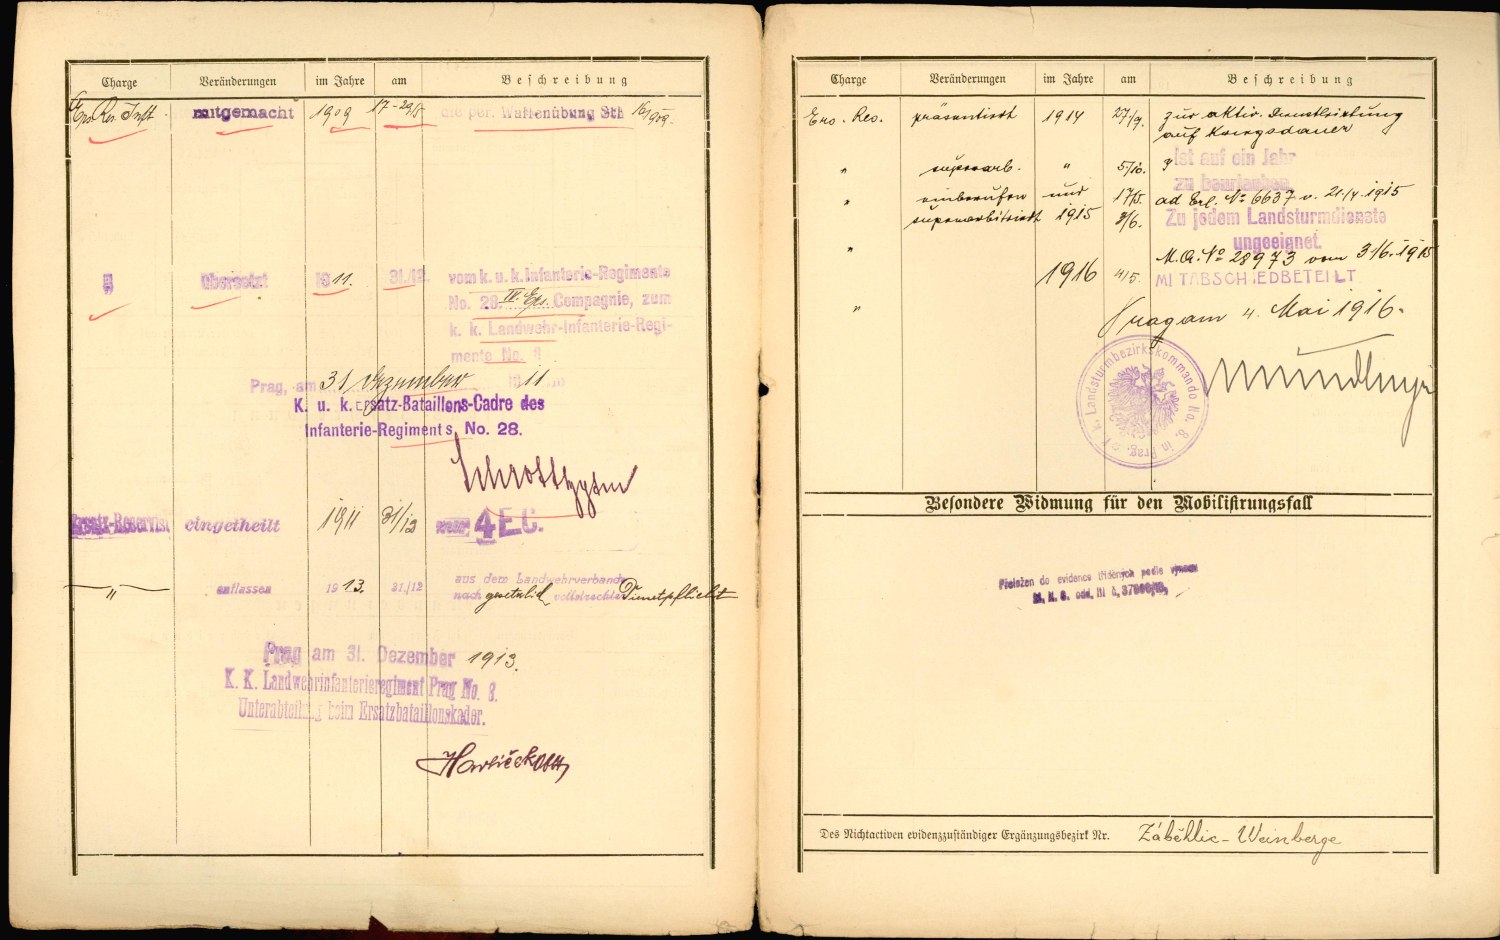 Charge Veränderungen im Jahre am Beschreibung
Ers. Res. Inft. mitgemacht 1909 17-29/5 die per. Waffenübung Stl 16/1909.
" übersetzt 1911. 31/12. vom k. u. k. Infanterie-Regimente
No. 28. IV. Ers. Compagnie, zum
k. k. Landwehr-Infanterie-Regi-
mente No. 8
Prag, am 31 Dezember 1911
K. u. k. Ersatz-Bataillons-Cadre des
Infanterie-Regiments No. 28.
Ersatz-Reservist eingetheilt 1911 31/12 4 E.C.
" entlassen 1913. 31/12 aus dem Landwehrverbande
nach gesetzlich vollstreckter Dienstpflicht
Prag am 31. Dezember 1913.
K. K. Landwehrinfanterieregiment Prag No. 8.
Unterabteilung beim Ersatzbataillonskader.
Havlíček Oblt
Charge Veränderungen im Jahre am Beschreibung
Ers. Res. präsentiert 1914 27/9. zur aktiv. Dienstleistung
auf Kriegsdauer
" superarb. " 5/10. Ist auf ein Jahr
zu beurlauben.
" einberufen und 17/5. ad Erl. No 6637 v. 21/4 1915
superarbitriert 1915 3/6. Zu jedem Landsturmdienste
ungeeignet.
" M.A. No 28973 vom 3/6. 1915
1916 4/5. MIT ABSCHIED BETEILT
" Prag am 4. Mai 1916.
K. k. Landsturmbezirkskommando No. 8, in Prag.
Besondere Widmung für den Mobilisirungsfall
Přeložen do evidence tříděných podle výnosu
M. N. O. odd. III
Des Nichtactiven evidenzzuständiger Ergänzungsbezirk Nr. Záběhlic-Weinberge